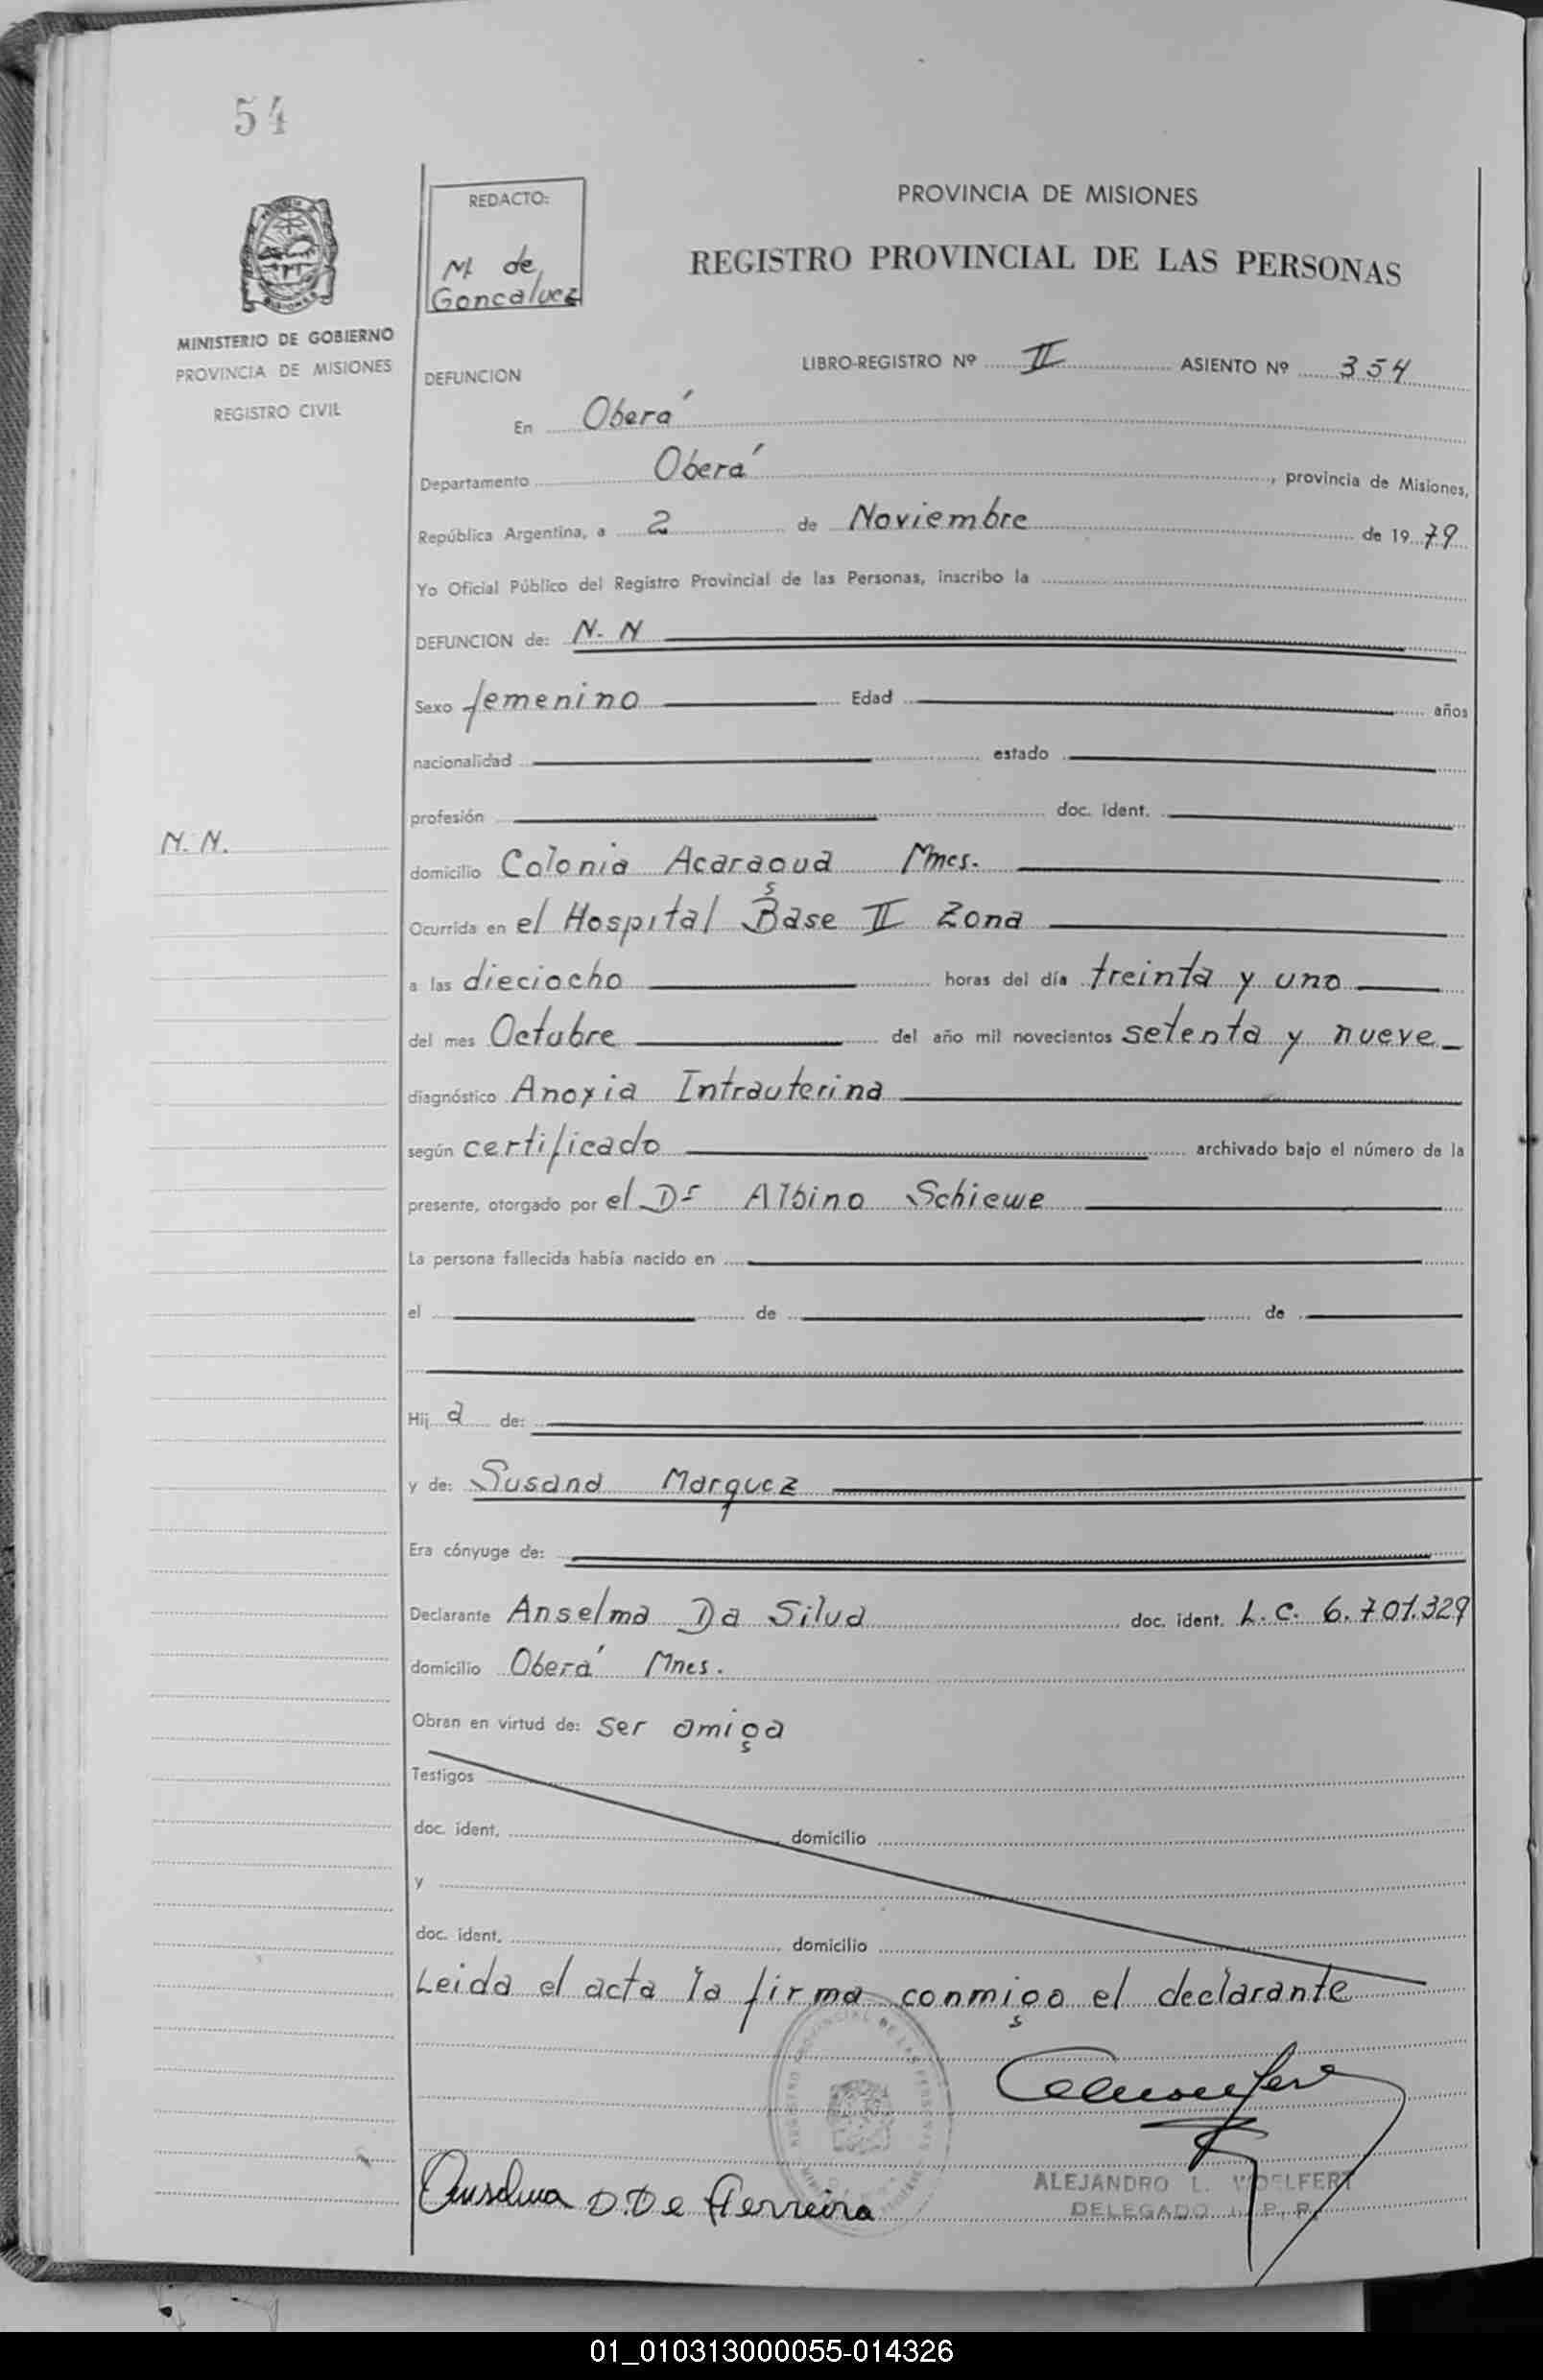 54
REDACTO:
M. de
Goncalvez
PROVINCIA DE MISIONES
REGISTRO PROVINCIAL DE LAS PERSONAS
MINISTERIO DE GOBIERNO
PROVINCIA DE MISIONES
REGISTRO CIVIL
LIBRO-REGISTRO Nº II ASIENTO Nº 354
DEFUNCION
En Oberá
Departamento Oberá, provincia de Misiones,
República Argentina, a 2 de Noviembre de 1979
Yo Oficial Público del Registro Provincial de las Personas, inscribo la
DEFUNCION de: N. N
Sexo femenino Edad años
nacionalidad estado
profesión doc. ident.
N. N.
domicilio Colonia Acaragua Mnes.
Ocurrida en el Hospital Base II Zona
a las dieciocho horas del día treinta y uno
del mes Octubre del año mil novecientos setenta y nueve
diagnóstico Anoxia Intrauterina
según certificado archivado bajo el número de la
presente, otorgado por el Dr Albino Schiewe
La persona fallecida había nacido en
el de de
Hij a de:
y de: Susana Marquez
Era cónyuge de:
Declarante Anselma Da Silva doc. ident. L. C. 6.701.329
domicilio Oberá Mnes.
Obran en virtud de: ser amiga
Testigos
doc. ident. domicilio
y
doc. ident. domicilio
Leida el acta la firma conmigo el declarante
REGISTRO PROVINCIAL DE LAS PERSONAS
Anselma D. De Ferreira
ALEJANDRO L. WOELFERT
DELEGADO R. P. P.
01_010313000055-014326